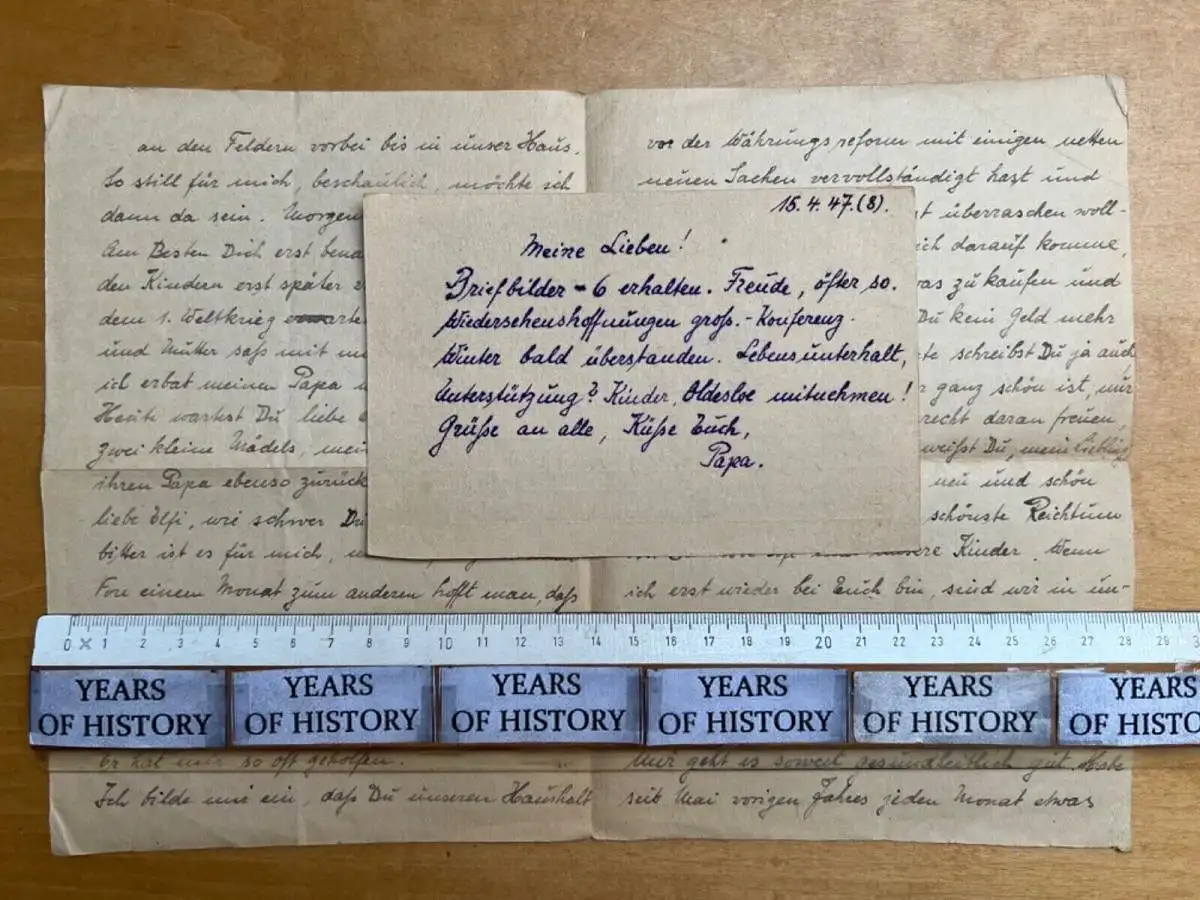 an den Feldern vorbei bis in unser Haus.
So still für mich, beschaulich, möchte ich
dann da sein. Morgen
Am Besten Dich erst bena
den Kindern erst später
dem 1. Weltkrieg
und Mutter saß mit
ich erbat meinen Papa
Heute wartest Du liebe
zwei kleine Mädels, mei
ihren Papa ebenso zurück
liebe Elfi, wie schwer
bitter ist es für mich,
Fon einem Monat zum anderen hofft man, daß
Er hat mir so oft geholfen.
Ich bilde mir ein, daß Du unseren Haushalt
15.4.47.(8).
Meine Lieben!
Briefbilder - 6 erhalten. Freude, öfter so.
Wiedersehenshoffnungen groß. - Konferenz.
Winter bald überstanden. Lebensunterhalt,
Unterstützung? Kinder, Oldesloe mitnehmen!
Grüße an alle, Küße Euch,
Papa.
vor der Währungsreform mit einigen netten
neuen Sachen vervollständigt hast und
überraschen woll-
ich darauf komme,
was zu kaufen und
Du kein Geld mehr
schreibst Du ja auch
ganz schön ist, nur
recht daran freuen,
weißt Du, mein Liebling
neu und schön
schönste Reichtum
Kinder. Wenn
ich erst wieder bei Euch bin, sind wir in un-
Mir geht es soweit gesundheitlich gut. Habe
seit Mai vorigen Jahres jeden Monat etwas
0 1 2 3 4 5 6 7 8 9 10 11 12 13 14 15 16 17 18 19 20 21 22 23 24 25 26 27 28 29
YEARS
OF HISTORY
YEARS
OF HISTORY
YEARS
OF HISTORY
YEARS
OF HISTORY
YEARS
OF HISTORY
YEARS
OF HISTO